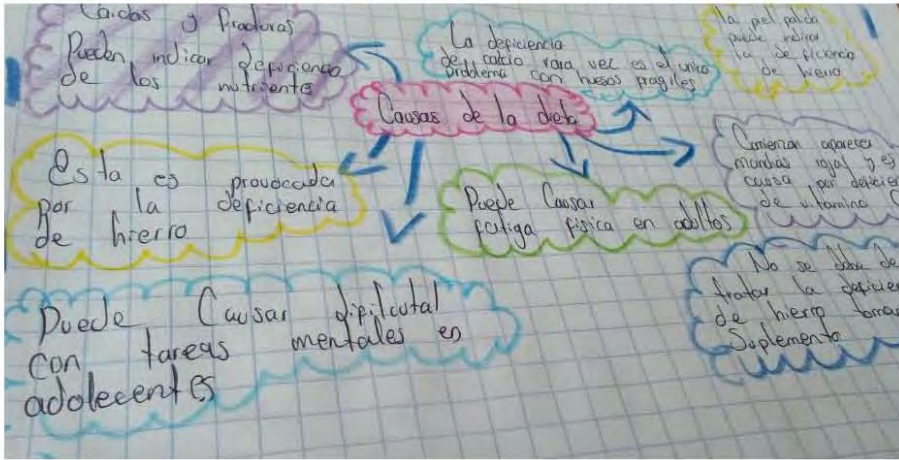 Caidas y fracturas
Pueden indicar deficiencia
de los nutriente
La deficiencia
de calcio rara vez es el unico
problema con huesos fragiles
la piel palida
puede indicar
la deficiencia
de hierro
Causas de la dieta
Esta es provocada
por la deficiencia
de hierro
Puede Causar
fatiga fisica en adultos
Comienzan aparecer
manchas rojas y es
causa por deficien
de vitamina C
Puede Causar dificultad
con tareas mentales en
adolecentes
No se debe de
tratar la deficien
de hierro toma
Suplemento